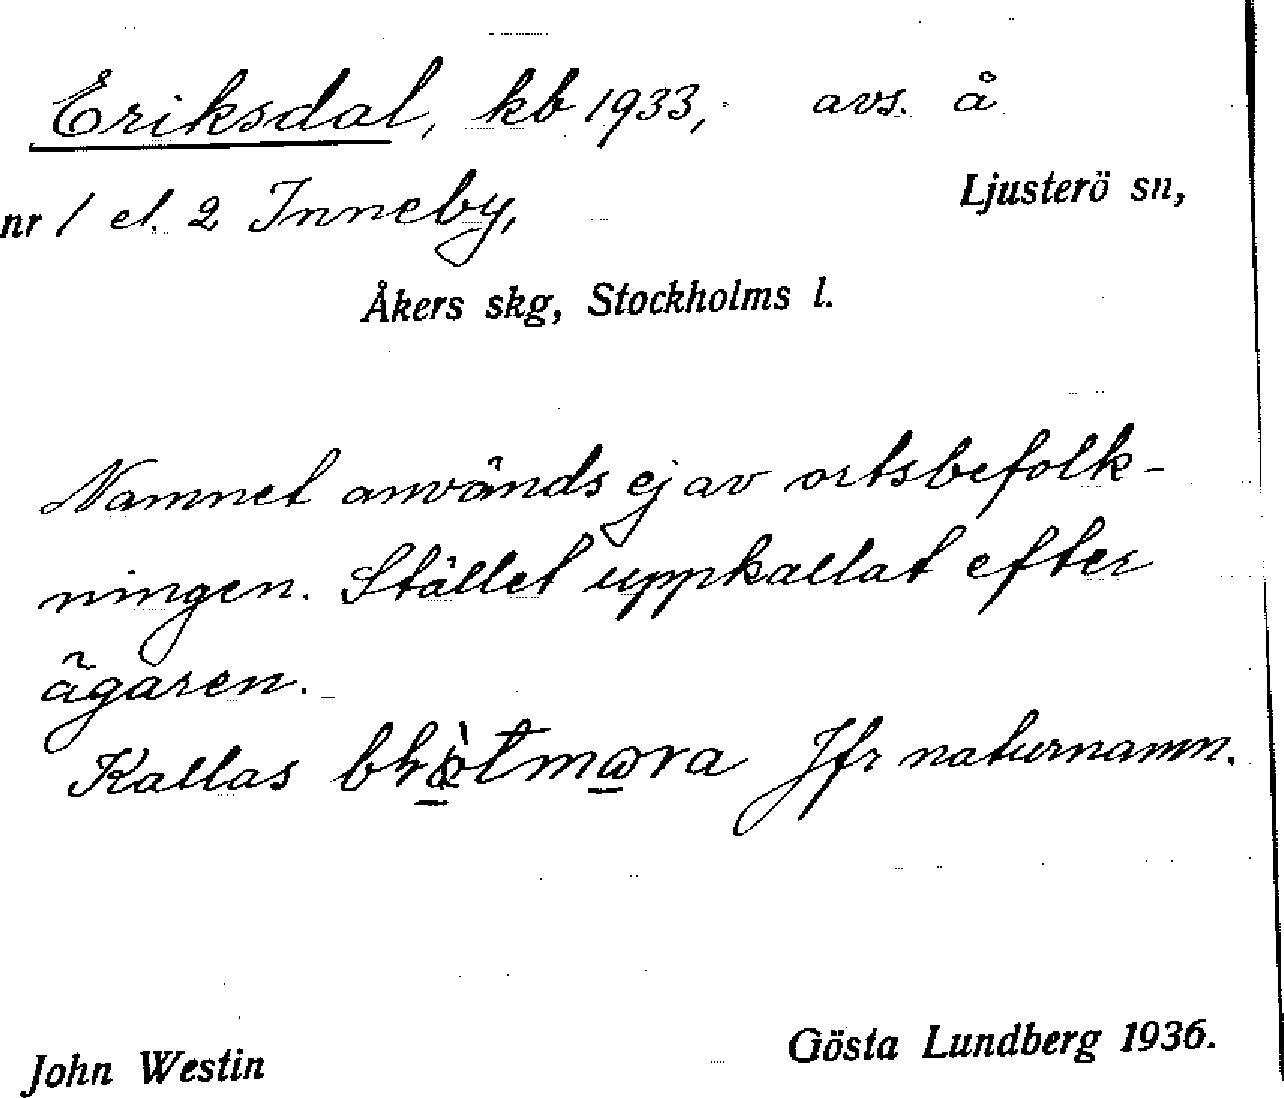 Eriksdal, kb 1933, avs. å
nr 1 el. 2 Inneby, Ljusterö sn,
Åkers skg, Stockholms l.
Namnet används ej av ortsbefolk-
ningen. Stället uppkallat efter
ägaren.
Kallas Jfr naturnamn.
John Westin Gösta Lundberg 1936.